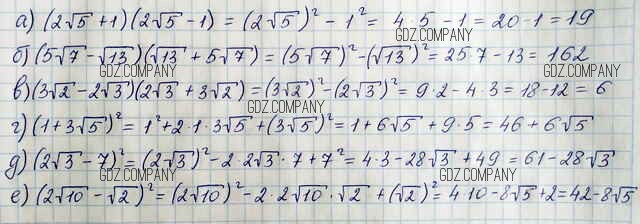 а) (2√5 + 1)(2√5 - 1) = (2√5)² - 1² = 4·5 - 1 = 20 - 1 = 19
GDZ.COMPANY
б) (5√7 - √13)(√13 + 5√7) = (5√7)² - (√13)² = 25·7 - 13 = 162
GDZ.COMPANY GDZ.COMPANY
в) (3√2 - 2√3)(2√3 + 3√2) = (3√2)² - (2√3)² = 9·2 - 4·3 = 18 - 12 = 6
GDZ.COMPANY
г) (1 + 3√5)² = 1² + 2·1·3√5 + (3√5)² = 1 + 6√5 + 9·5 = 46 + 6√5
д) (2√3 - 7)² = (2√3)² - 2·2√3·7 + 7² = 4·3 - 28√3 + 49 = 61 - 28√3
GDZ.COMPANY GDZ.COMPANY
е) (2√10 - √2)² = (2√10)² - 2·2√10·√2 + (√2)² = 4·10 - 8√5 + 2 = 42 - 8√5